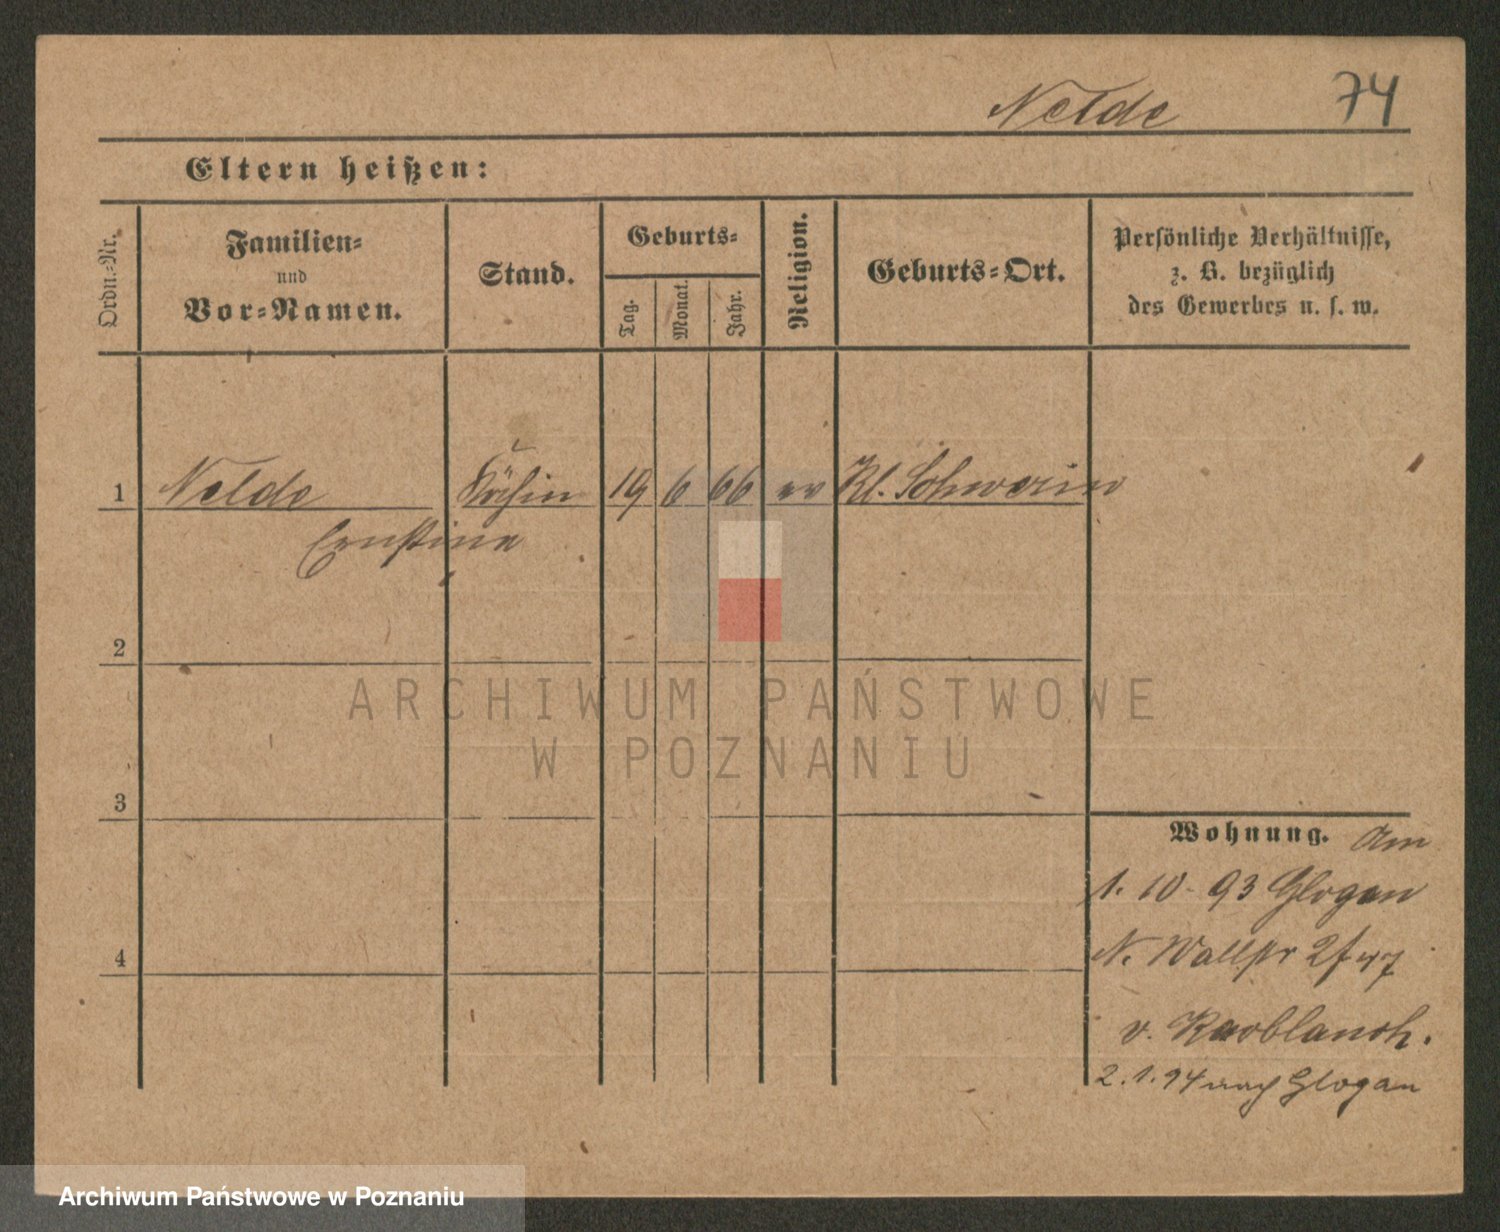 Nelde 74
Eltern heißen:
Ordn.-Nr.
Familien-
und
Vor-Namen.
Stand.
Geburts-
Tag.
Monat.
Jahr.
Religion.
Geburts-Ort.
Persönliche Verhältnisse,
z. B. bezüglich
des Gewerbes u. s. w.
1 Nelde Köchin 19 6 66 ev Kl. Schwerin
Ernstine
2
3
4
Wohnung. Am
1. 10. 93 Glogau
N. Wallstr
v. Knoblauch.
2. 1. 94 nach Glogau
ARCHIWUM PAŃSTWOWE
W POZNANIU
Archiwum Państwowe w Poznaniu